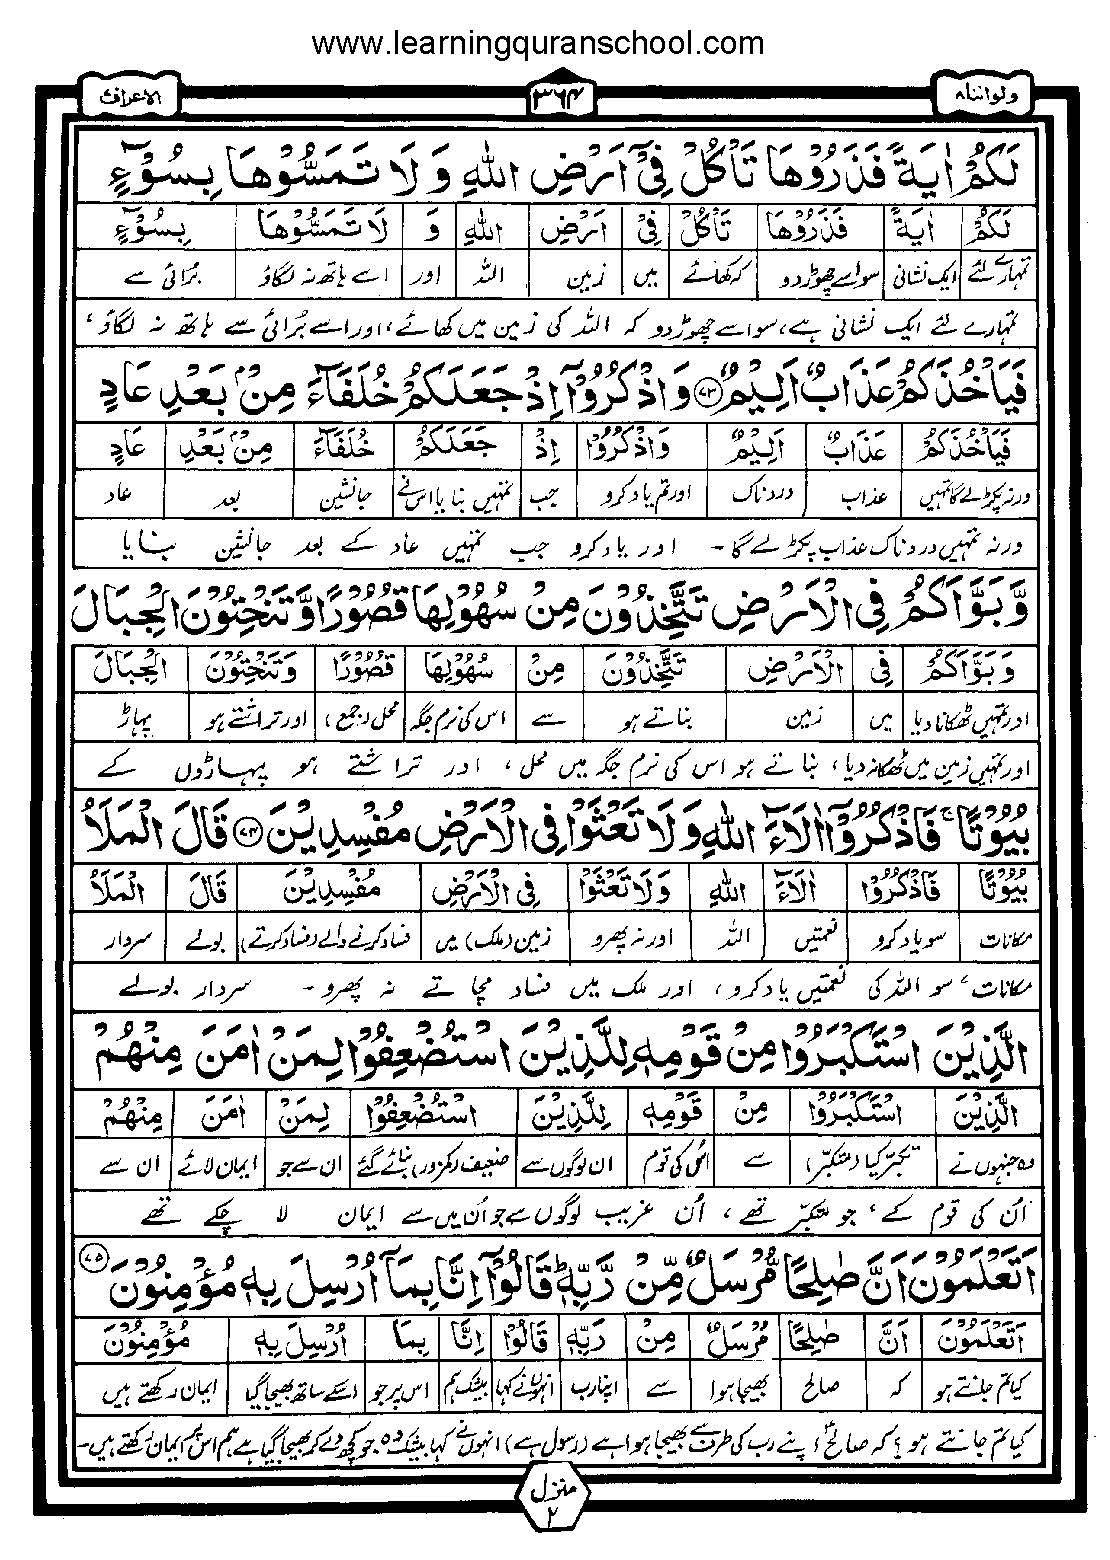 www.learningquranschool.com
ولواننا۸
۳۶۴
الاعراف۷
لَكُمْ اٰيَةً فَذَرُوْهَا تَاْكُلْ فِيْۤ اَرْضِ اللّٰهِ وَ لَا تَمَسُّوْهَا بِسُوْٓءٍ
لَكُمْ اٰيَةً فَذَرُوْهَا تَاْكُلْ فِيْۤ اَرْضِ اللّٰهِ وَ لَا تَمَسُّوْهَا بِسُوْٓءٍ
تمہارے لئے ایک نشانی سو اسے چھوڑ دو کہ کھائے میں زمین اللہ اور اسے ہاتھ نہ لگاؤ بُرائی سے
تمہارے لئے ایک نشانی ہے، سو اسے چھوڑ دو کہ اللہ کی زمین میں کھائے، اور اسے بُرائی سے ہاتھ نہ لگاؤ،
فَيَاْخُذَكُمْ عَذَابٌ اَلِيْمٌ ۷۳ وَاذْكُرُوْۤا اِذْ جَعَلَكُمْ خُلَفَآءَ مِنْۢ بَعْدِ عَادٍ
فَيَاْخُذَكُمْ عَذَابٌ اَلِيْمٌ وَاذْكُرُوْۤا اِذْ جَعَلَكُمْ خُلَفَآءَ مِنْۢ بَعْدِ عَادٍ
ورنہ پکڑ لے گا تمہیں عذاب دردناک اور تم یاد کرو جب تمہیں بنایا اس نے جانشین بعد عاد
ورنہ تمہیں دردناک عذاب پکڑ لے گا۔ اور یاد کرو جب تمہیں عاد کے بعد جانشین بنایا
وَّبَوَّاَكُمْ فِي الْاَرْضِ تَتَّخِذُوْنَ مِنْ سُهُوْلِهَا قُصُوْرًا وَّتَنْحِتُوْنَ الْجِبَالَ
وَبَوَّاَكُمْ فِي الْاَرْضِ تَتَّخِذُوْنَ مِنْ سُهُوْلِهَا قُصُوْرًا وَّتَنْحِتُوْنَ الْجِبَالَ
اور تمہیں ٹھکانا دیا میں زمین بناتے ہو سے اس کی نرم جگہ محل (جمع) اور تراشتے ہو پہاڑ
اور تمہیں زمین میں ٹھکانہ دیا، بناتے ہو اس کی نرم جگہ میں محل، اور تراشتے ہو پہاڑوں کے
بُيُوْتًا ۚ فَاذْكُرُوْۤا اٰلَآءَ اللّٰهِ وَلَا تَعْثَوْا فِي الْاَرْضِ مُفْسِدِيْنَ ۷۴ قَالَ الْمَلَاُ
بُيُوْتًا فَاذْكُرُوْۤا اٰلَآءَ اللّٰهِ وَلَا تَعْثَوْا فِي الْاَرْضِ مُفْسِدِيْنَ قَالَ الْمَلَاُ
مکانات سو یاد کرو نعمتیں اللہ اور نہ پھرو زمین (ملک) میں فساد کرنے والے (فساد کرتے) بولے سردار
مکانات، سو اللہ کی نعمتیں یاد کرو، اور ملک میں فساد مچاتے نہ پھرو۔ سردار بولے
الَّذِيْنَ اسْتَكْبَرُوْا مِنْ قَوْمِهٖ لِلَّذِيْنَ اسْتُضْعِفُوْا لِمَنْ اٰمَنَ مِنْهُمْ
الَّذِيْنَ اسْتَكْبَرُوْا مِنْ قَوْمِهٖ لِلَّذِيْنَ اسْتُضْعِفُوْا لِمَنْ اٰمَنَ مِنْهُمْ
وہ جنہوں نے تکبر کیا (متکبر) سے اس کی قوم ان لوگوں سے ضعیف (کمزور) بنائے گئے ان سے جو ایمان لائے ان سے
اُن کی قوم کے، جو متکبر تھے، اُن غریب لوگوں سے جو اُن میں سے ایمان لا چکے تھے
اَتَعْلَمُوْنَ اَنَّ صٰلِحًا مُّرْسَلٌ مِّنْ رَّبِّهٖ ؕ قَالُوْۤا اِنَّا بِمَاۤ اُرْسِلَ بِهٖ مُؤْمِنُوْنَ ۷۵
اَتَعْلَمُوْنَ اَنَّ صٰلِحًا مُّرْسَلٌ مِنْ رَّبِّهٖ قَالُوْۤا اِنَّا بِمَا اُرْسِلَ بِهٖ مُؤْمِنُوْنَ
کیا تم جانتے ہو کہ صالح بھیجا ہوا سے اپنا رب انہوں نے کہا بیشک ہم اس پر جو اسکے ساتھ بھیجا گیا ایمان رکھتے ہیں
کیا تم جانتے ہو؟ کہ صالح اپنے رب کی طرف سے بھیجا ہوا ہے (رسول ہے) انہوں نے کہا بیشک وہ جو کچھ دے کر بھیجا گیا ہے ہم اس پر ایمان رکھتے ہیں۔
منزل
۲